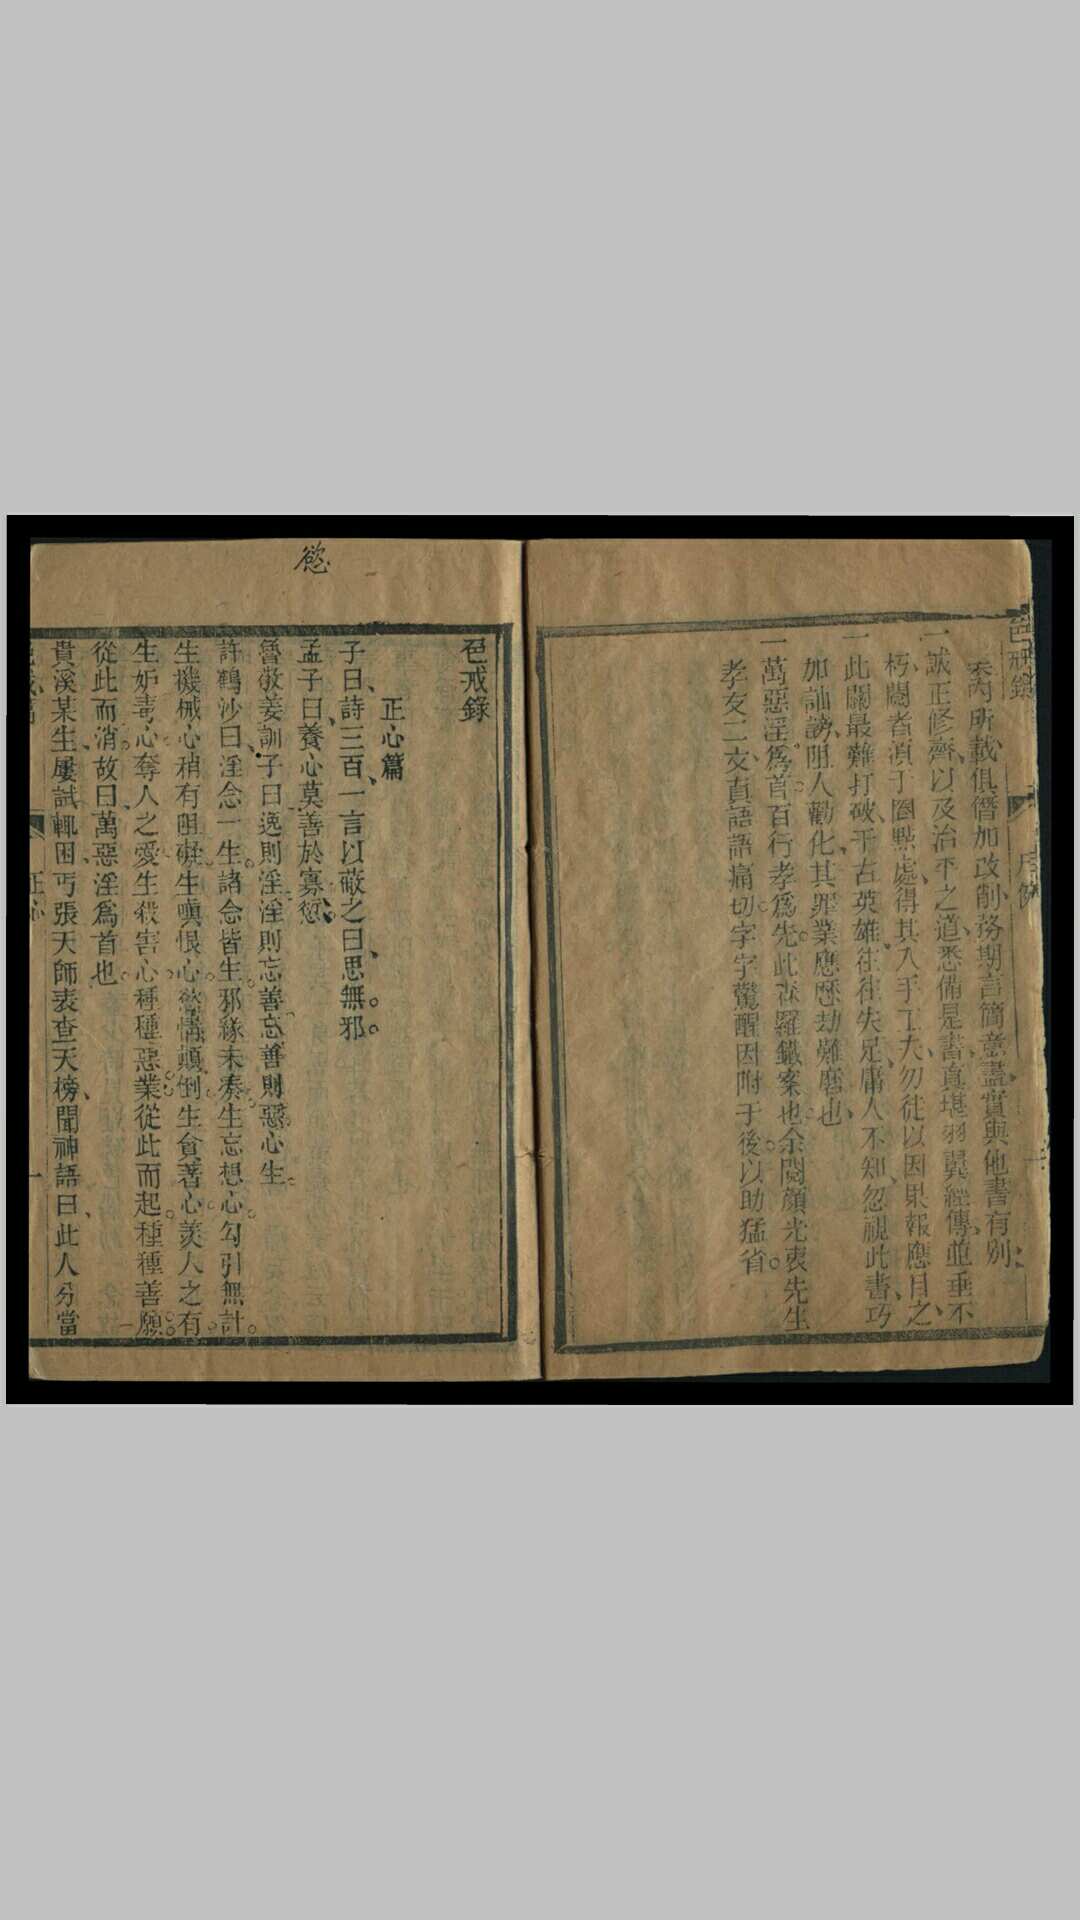 集內所載俱僭加改削務期言簡意盡實與他書有別
一誠正修齊以及治平之道悉備是書真堪羽翼經傳並垂不
朽閱者須于圈點處得其入手工夫勿徒以因果報應目之
一此關最難打破千古英雄往往失足庸人不知忽視此書巧
加訕謗阻人勸化其罪業應歷劫難磨也
一萬惡淫爲首百行孝爲先此森羅鐵案也余閱顏光衷先生
孝友二文真語語痛切字字驚醒因附于後以助猛省
慾
色戒錄
正心篇
子曰詩三百一言以蔽之曰思無邪
孟子曰養心莫善於寡慾
魯敬姜訓子曰逸則淫淫則忘善忘善則惡心生
許鶴沙曰淫念一生諸念皆生邪緣未湊生忘想心勾引無計
生機械心稍有阻礙生嗔恨心慾情顛倒生貪著心羨人之有
生妒毒心奪人之愛生殺害心種種惡業從此而起種種善願
從此而消故曰萬惡淫爲首也
貴溪某生屢試輒困丐張天師表查天榜聞神語曰此人分當
正心
一